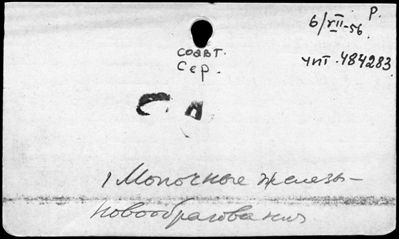 Р.
6/VII-56
соавт.
Сер.
чит.484283
1 Молочные железы-
новообразования